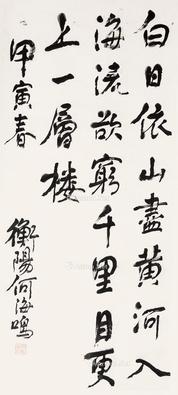 白日依山盡黄河入
海流欲窮千里目更
上一層楼
甲寅春
衡陽何海鳴